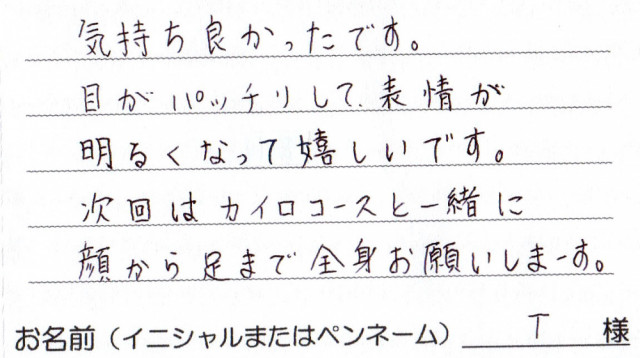 気持ち良かったです。
目がパッチリして、表情が
明るくなって嬉しいです。
次回はカイロコースと一緒に
顔から足まで全身お願いしまーす。
お名前（イニシャルまたはペンネーム） T 様